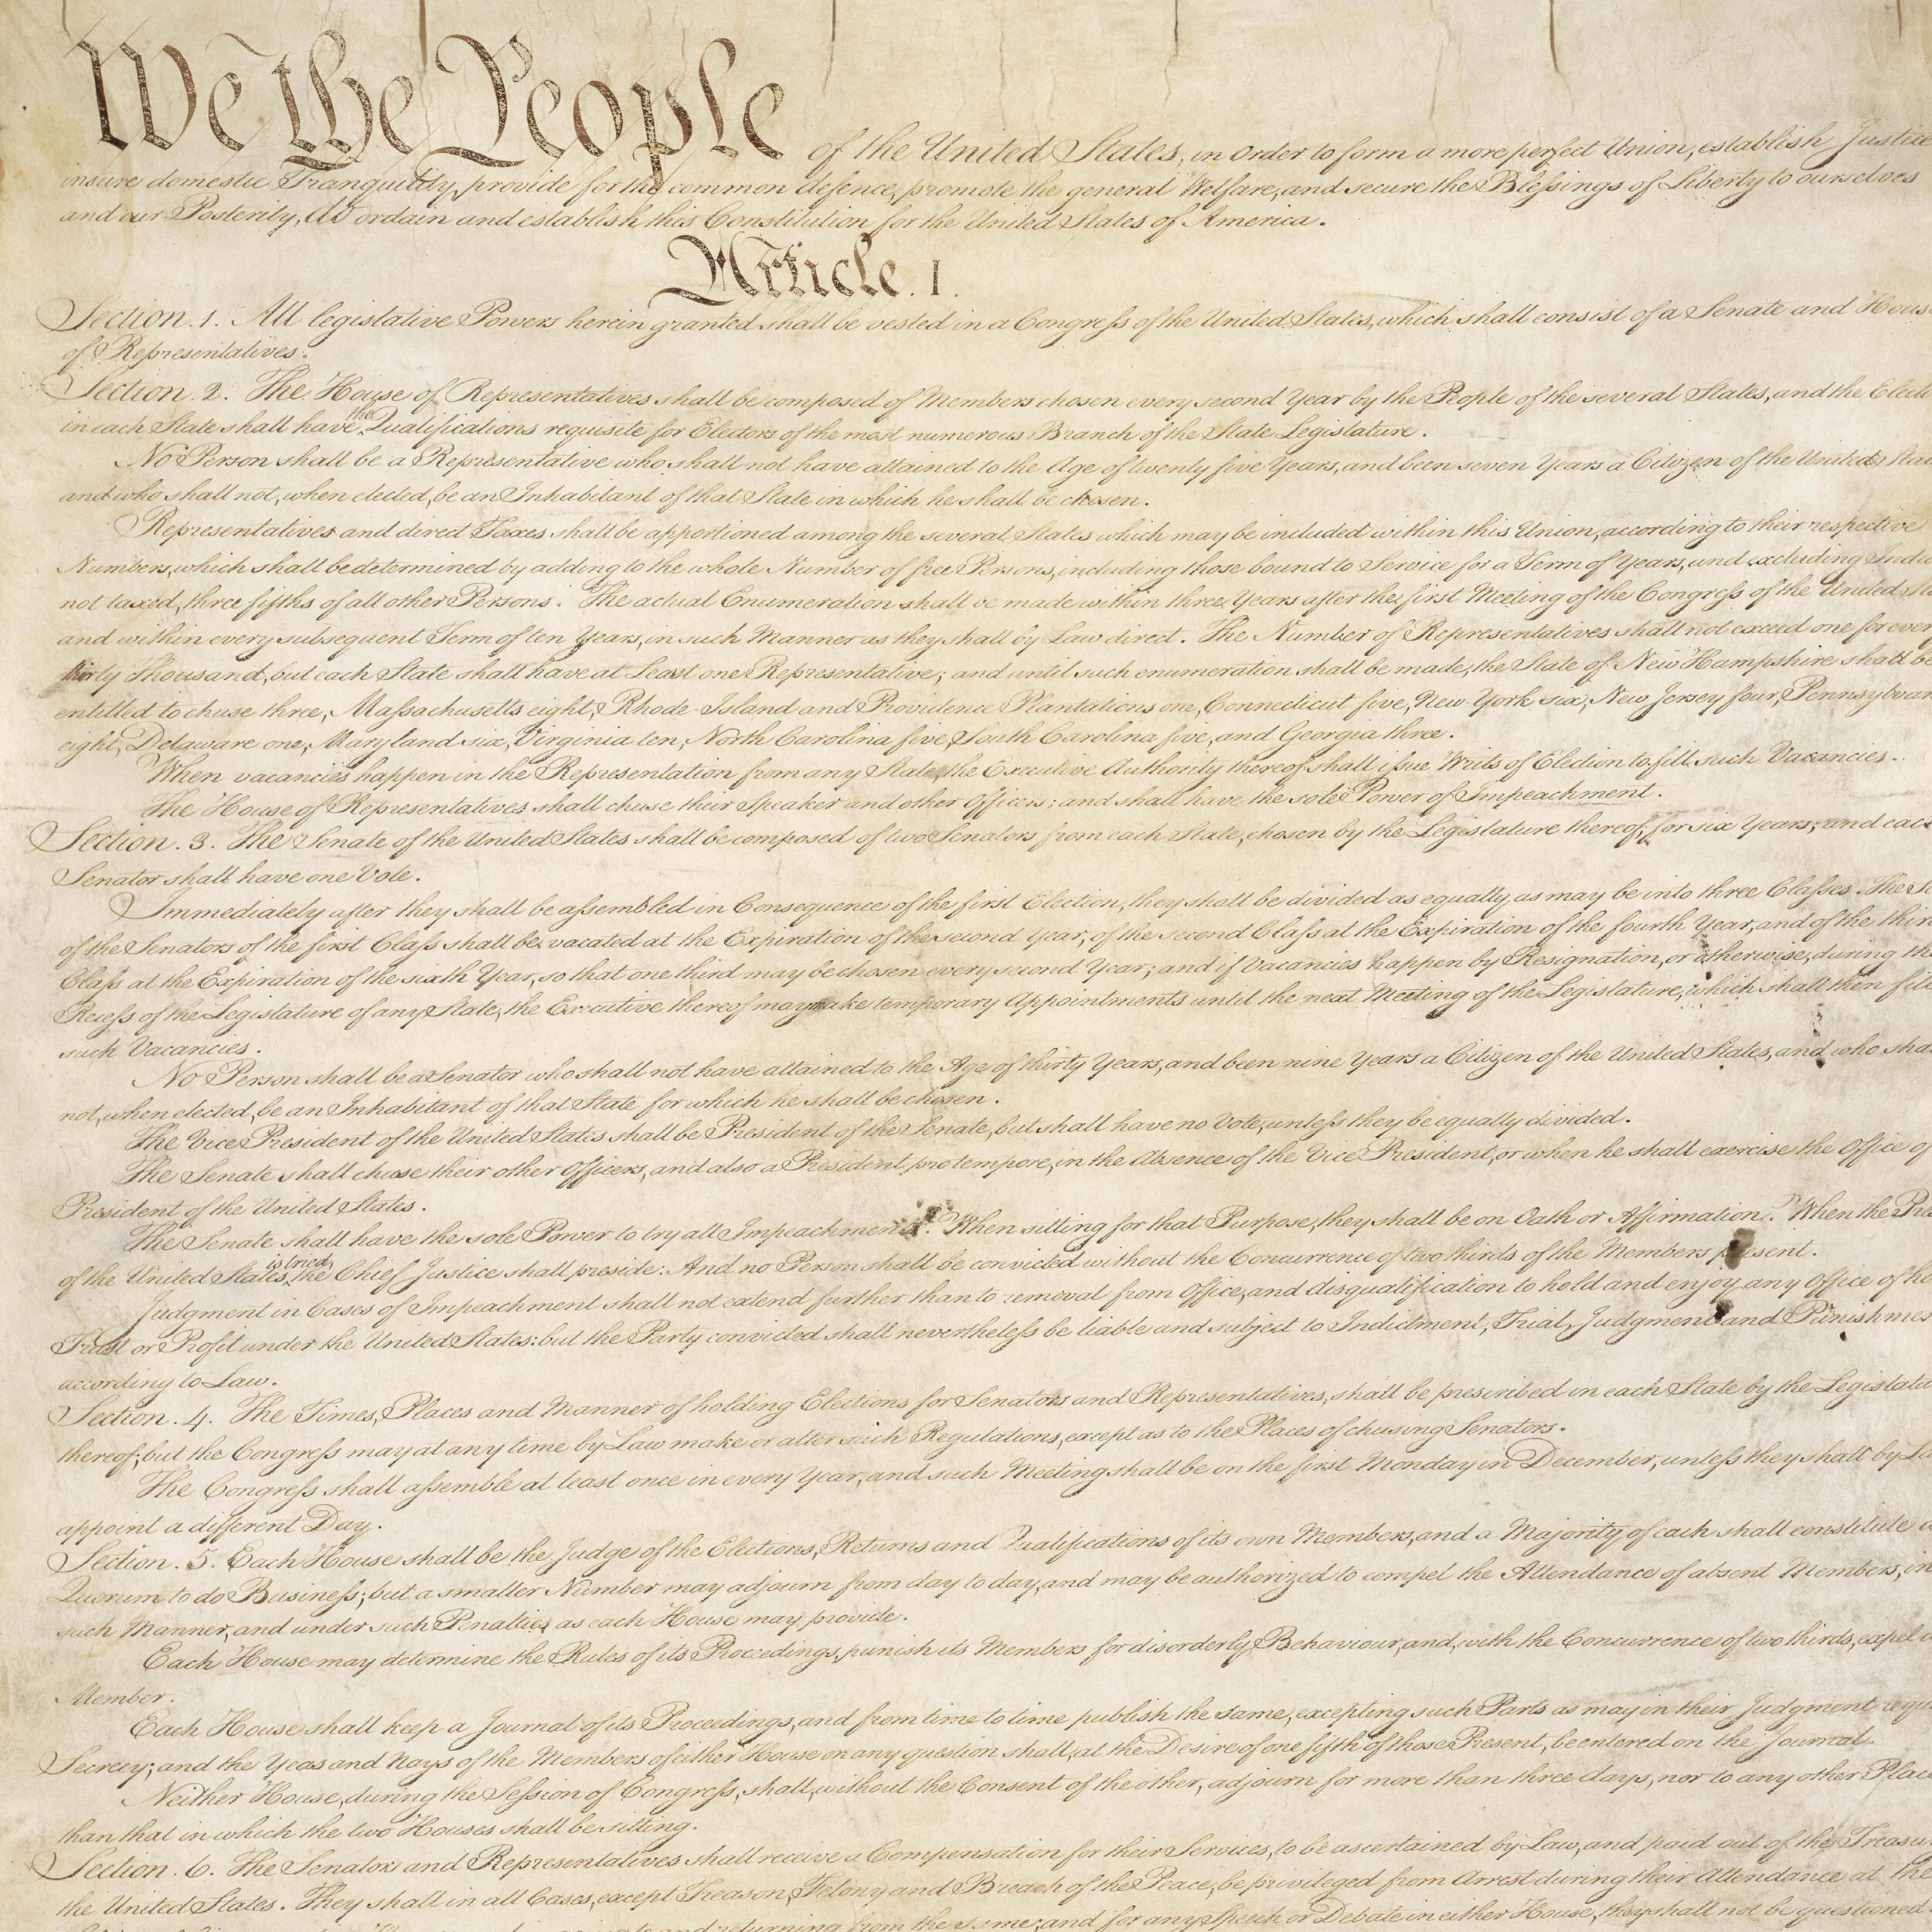 We the People of the United States, in Order to form a more perfect Union, establish Justice
insure domestic Tranquility, provide for the common defence, promote the general Welfare, and secure the Blessings of Liberty to ourselves
and our Posterity, do ordain and establish this Constitution for the United States of America.
Article. I.
Section. 1. All legislative Powers herein granted shall be vested in a Congress of the United States, which shall consist of a Senate and House
of Representatives.
Section. 2. The House of Representatives shall be composed of Members chosen every second Year by the People of the several States, and the Elect
in each State shall have the Qualifications requisite for Electors of the most numerous Branch of the State Legislature.
No Person shall be a Representative who shall not have attained to the Age of twenty five Years, and been seven Years a Citizen of the United Sta
and who shall not, when elected, be an Inhabitant of that State in which he shall be chosen.
Representatives and direct Taxes shall be apportioned among the several States which may be included within this Union, according to their respective
Numbers, which shall be determined by adding to the whole Number of free Persons, including those bound to Service for a Term of Years, and excluding India
not taxed, three fifths of all other Persons. The actual Enumeration shall be made within three Years after the first Meeting of the Congress of the United Sta
and within every subsequent Term of ten Years, in such Manner as they shall by Law direct. The Number of Representatives shall not exceed one for ever
thirty Thousand, but each State shall have at Least one Representative; and until such enumeration shall be made, the State of New Hampshire shall be
entitled to chuse three, Massachusetts eight, Rhode-Island and Providence Plantations one, Connecticut five, New-York six, New Jersey four, Pennsylvan
eight, Delaware one, Maryland six, Virginia ten, North Carolina five, South Carolina five, and Georgia three.
When vacancies happen in the Representation from any State, the Executive Authority thereof shall issue Writs of Election to fill such Vacancies.
The House of Representatives shall chuse their Speaker and other Officers; and shall have the sole Power of Impeachment.
Section. 3. The Senate of the United States shall be composed of two Senators from each State, chosen by the Legislature thereof, for six Years; and each
Senator shall have one Vote.
Immediately after they shall be assembled in Consequence of the first Election, they shall be divided as equally as may be into three Classes. The Se
of the Senators of the first Class shall be vacated at the Expiration of the second Year, of the second Class at the Expiration of the fourth Year, and of the third
Class at the Expiration of the sixth Year, so that one third may be chosen every second Year; and if Vacancies happen by Resignation, or otherwise, during the
Recess of the Legislature of any State, the Executive thereof may make temporary Appointments until the next Meeting of the Legislature, which shall then fill
such Vacancies.
No Person shall be a Senator who shall not have attained to the Age of thirty Years, and been nine Years a Citizen of the United States, and who shal
not, when elected, be an Inhabitant of that State for which he shall be chosen.
The Vice President of the United States shall be President of the Senate, but shall have no Vote, unless they be equally divided.
The Senate shall chuse their other Officers, and also a President pro tempore, in the Absence of the Vice President, or when he shall exercise the Office of
President of the United States.
The Senate shall have the sole Power to try all Impeachments. When sitting for that Purpose, they shall be on Oath or Affirmation. When the Pre
of the United States is tried, the Chief Justice shall preside: And no Person shall be convicted without the Concurrence of two thirds of the Members present.
Judgment in Cases of Impeachment shall not extend further than to removal from Office, and disqualification to hold and enjoy any Office of ho
Trust or Profit under the United States: but the Party convicted shall nevertheless be liable and subject to Indictment, Trial, Judgment and Punishmen
according to Law.
Section. 4. The Times, Places and Manner of holding Elections for Senators and Representatives, shall be prescribed in each State by the Legislatu
thereof; but the Congress may at any time by Law make or alter such Regulations, except as to the Places of chusing Senators.
The Congress shall assemble at least once in every Year, and such Meeting shall be on the first Monday in December, unless they shall by La
appoint a different Day.
Section. 5. Each House shall be the Judge of the Elections, Returns and Qualifications of its own Members, and a Majority of each shall constitute a
Quorum to do Business; but a smaller Number may adjourn from day to day, and may be authorized to compel the Attendance of absent Members, in
such Manner, and under such Penalties as each House may provide.
Each House may determine the Rules of its Proceedings, punish its Members for disorderly Behaviour, and, with the Concurrence of two thirds, expel a
Member.
Each House shall keep a Journal of its Proceedings, and from time to time publish the same, excepting such Parts as may in their Judgment requi
Secrecy; and the Yeas and Nays of the Members of either House on any question shall, at the Desire of one fifth of those Present, be entered on the Journal.
Neither House, during the Session of Congress, shall, without the Consent of the other, adjourn for more than three days, nor to any other Place
than that in which the two Houses shall be sitting.
Section. 6. The Senators and Representatives shall receive a Compensation for their Services, to be ascertained by Law, and paid out of the Treasur
the United States. They shall in all Cases, except Treason, Felony and Breach of the Peace, be privileged from Arrest during their Attendance at the
and returning from the same; and for any Speech or Debate in either House, they shall not be questioned